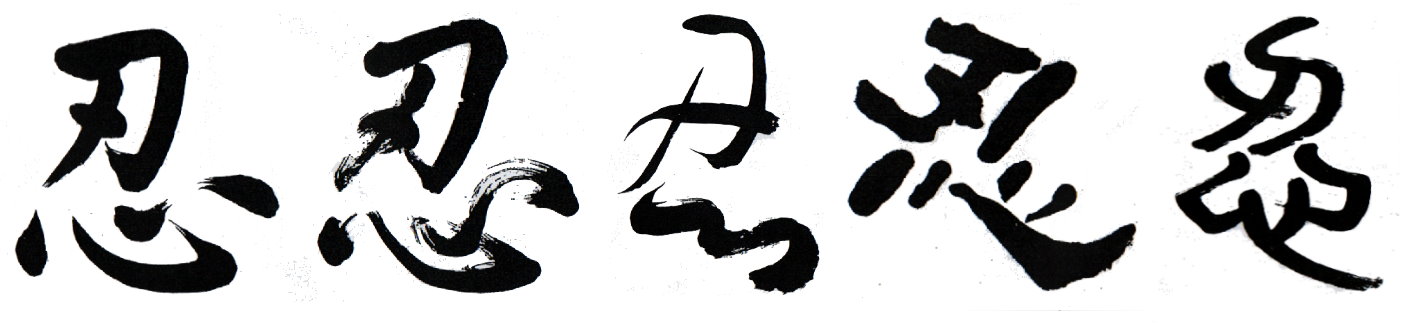 忍忍忍忍忍